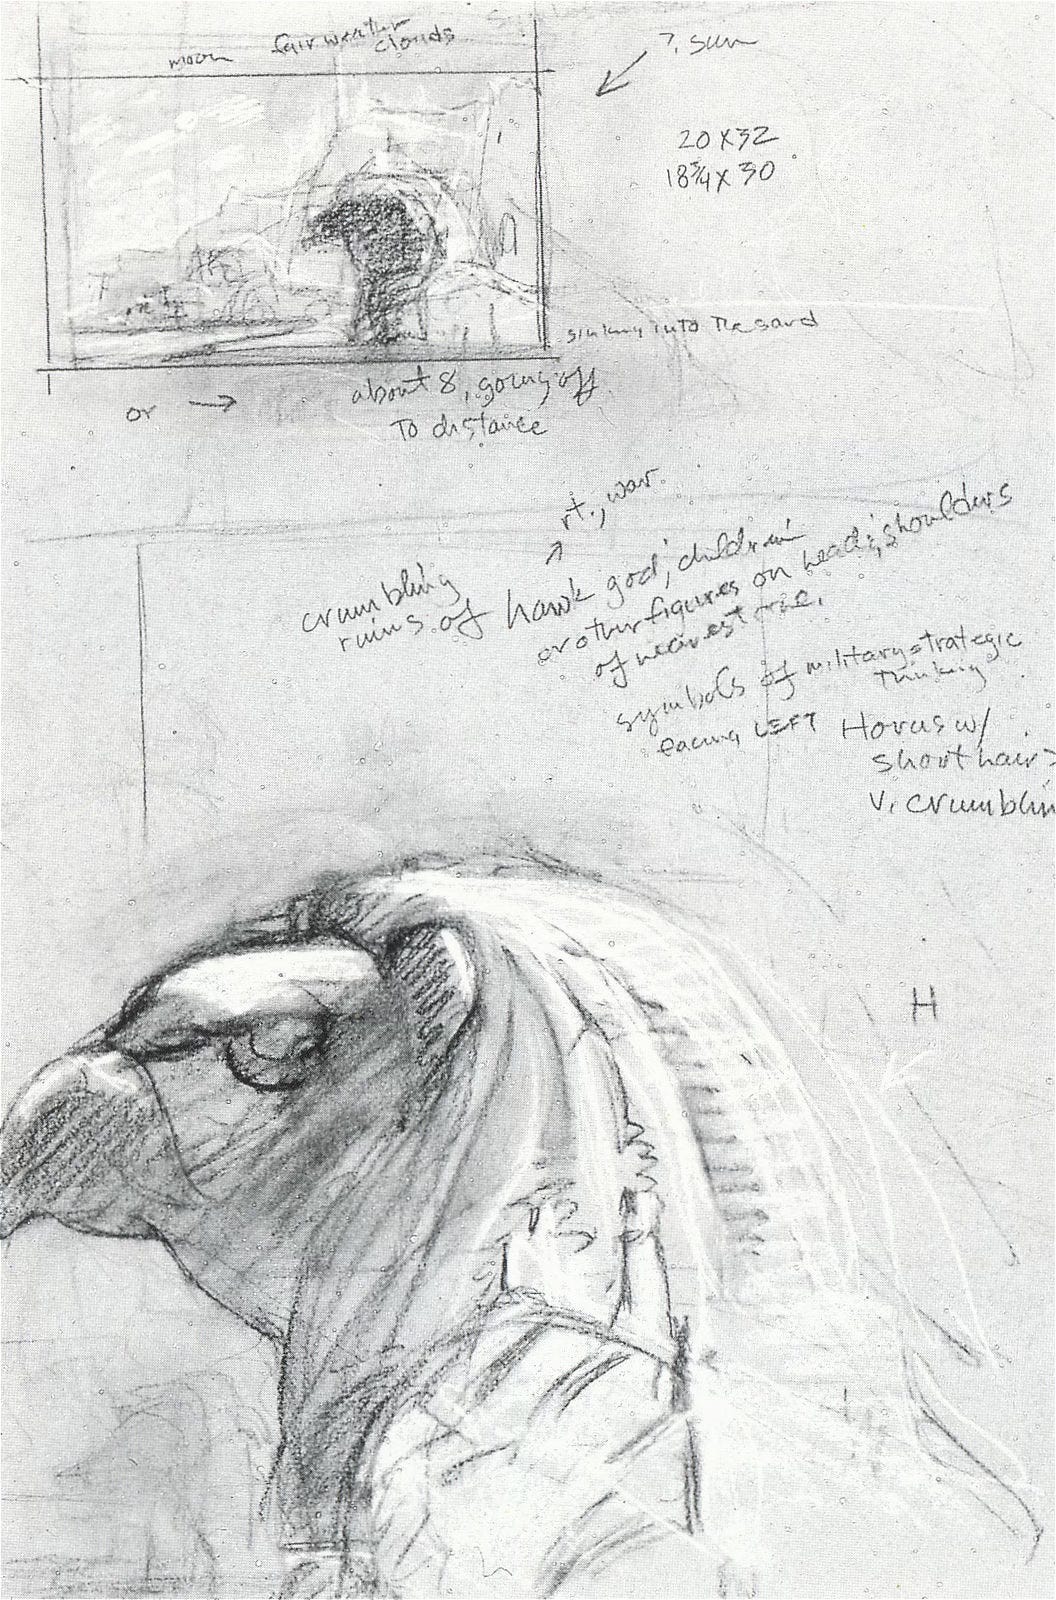 moon
fair weather
clouds
?. sun
20 x 32
18 3/4 x 30
sinking into the sand
about 8, going off
To distance
or →
rt., war.
crumbling
ruins of hawk god; children
or other figures on head; shoulders
of nearest one.
symbols of military-strategic
thinking
facing LEFT
Horus w/
short hair
v. crumblin
H